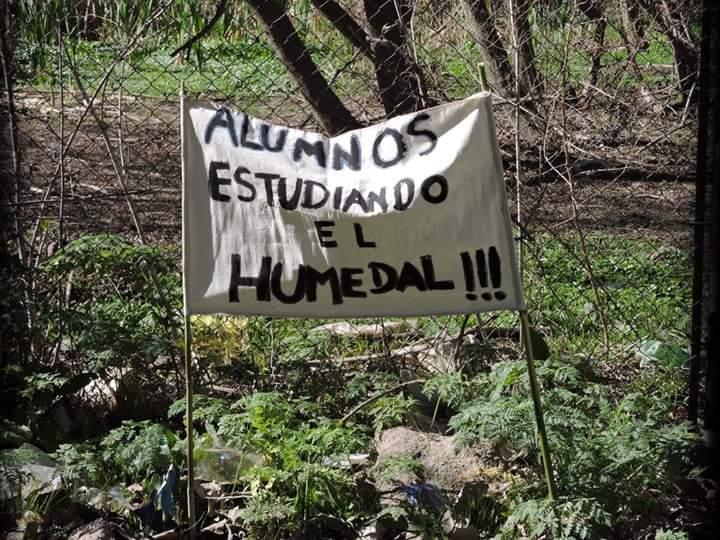 ALUMNOS
ESTUDIANDO
EL
HUMEDAL!!!